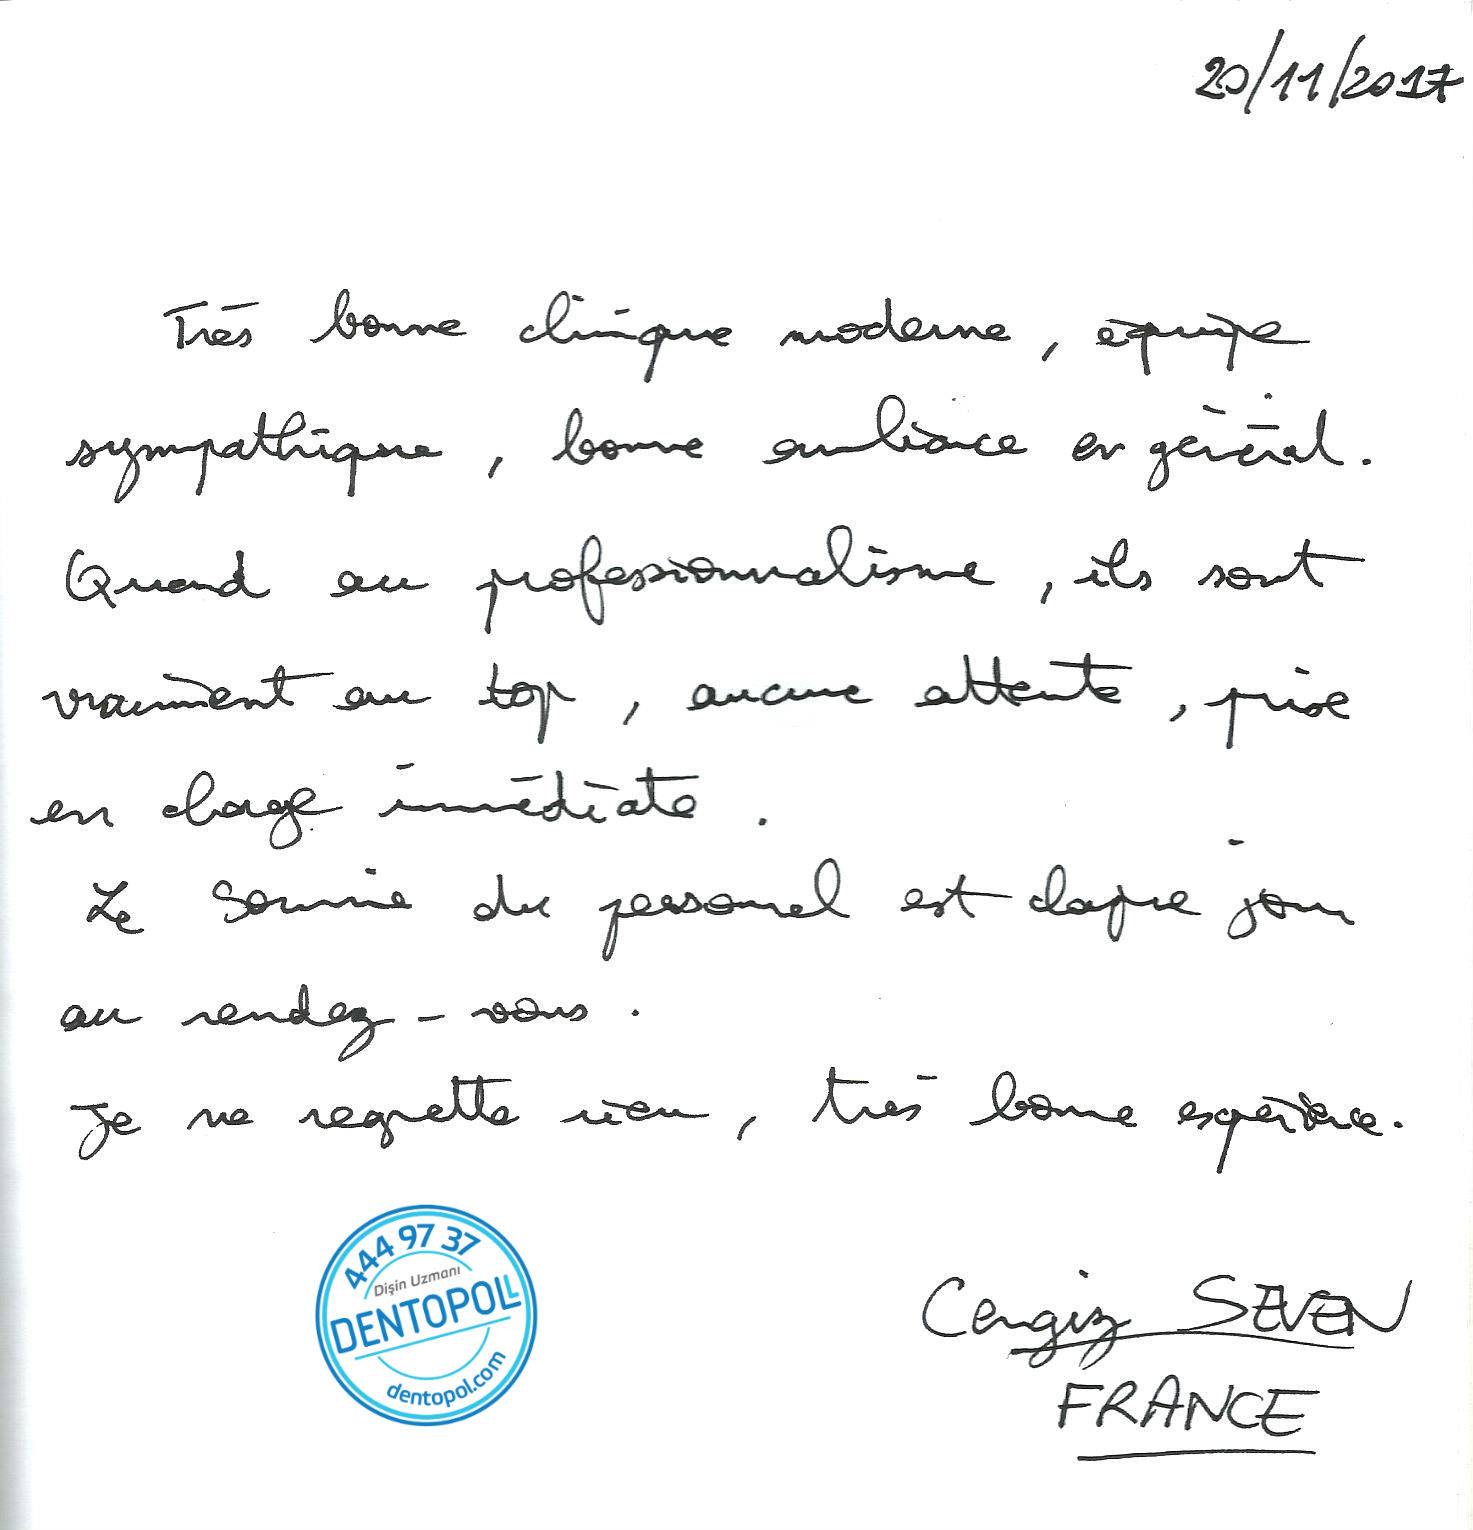 20/11/2017
Très bonne clinique moderne, équipe
sympathique, bonne ambiance en général.
Quand au professionnalisme, ils sont
vraiment au top, aucune attente, prise
en charge immédiate.
Le sourire du personnel est chaque jour
au rendez-vous.
Je ne regrette rien, très bonne expérience.
444 97 37
Dişin Uzmanı
DENTOPOLL
dentopol.com
Cengiz SEVEN
FRANCE